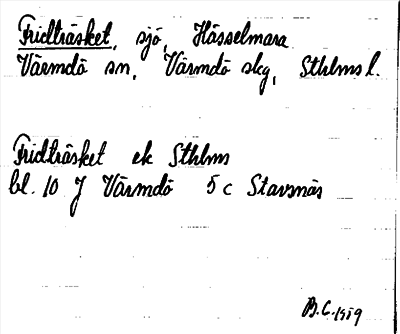 Fridträsket, sjö, Hässelmara
Värmdö sn, Värmdö skg, Sthlms l.
Fridträsket ek Sthlms
bl. 10 J Värmdö 5 c Stavsnäs
B.C. 1959